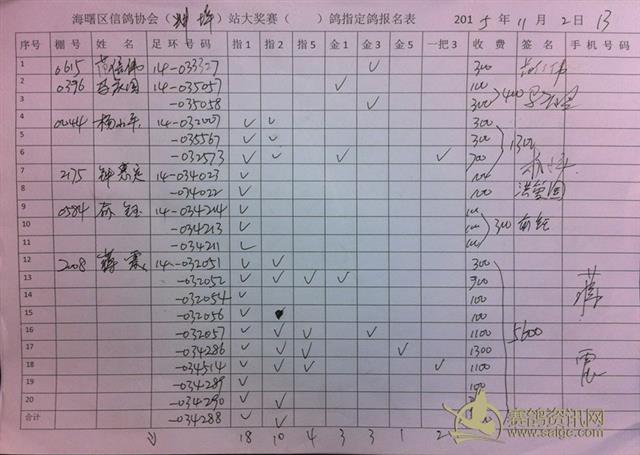 海曙区信鸽协会（蚌埠）站大奖赛（ ）鸽指定鸽报名表 2015年11月2日 13
序号 棚号 姓名 足环号码 指1 指2 指3 金1 金3 金5 一把3 收费 签名 手机号码
1 0615 范信伟 14-033327 ✓ 300
2 0396 14-035057 ✓ 100
3 -035058 ✓ 300 400
4 0044 杨小平 14-032007 ✓ ✓ 300
5 -035567 ✓ ✓ 300 1300
6 -032573 ✓ ✓ ✓ ✓ 700
7 2175 钟 14-034023 ✓ 100
8 -034022 ✓ 100
9 0584 俞钰 14-034214 ✓ 100
10 -034213 ✓ 100 300 俞钰
11 -034211 ✓ 100
12 2008 蒋震 14-032051 ✓ ✓ 300
13 -032052 ✓ ✓ ✓ ✓ 900
14 -032054 ✓ 100
15 -032056 ✓ 100
16 -032057 ✓ ✓ ✓ ✓ 1100 5600
17 -034286 ✓ ✓ ✓ ✓ 1300
18 -034514 ✓ ✓ ✓ ✓ 1100
19 -034289 ✓ 100
20 -034290 ✓ ✓
合计 -034288 ✓ ✓
18 10 4 3 3 1 2
赛鸽资讯网
www.saigc.com